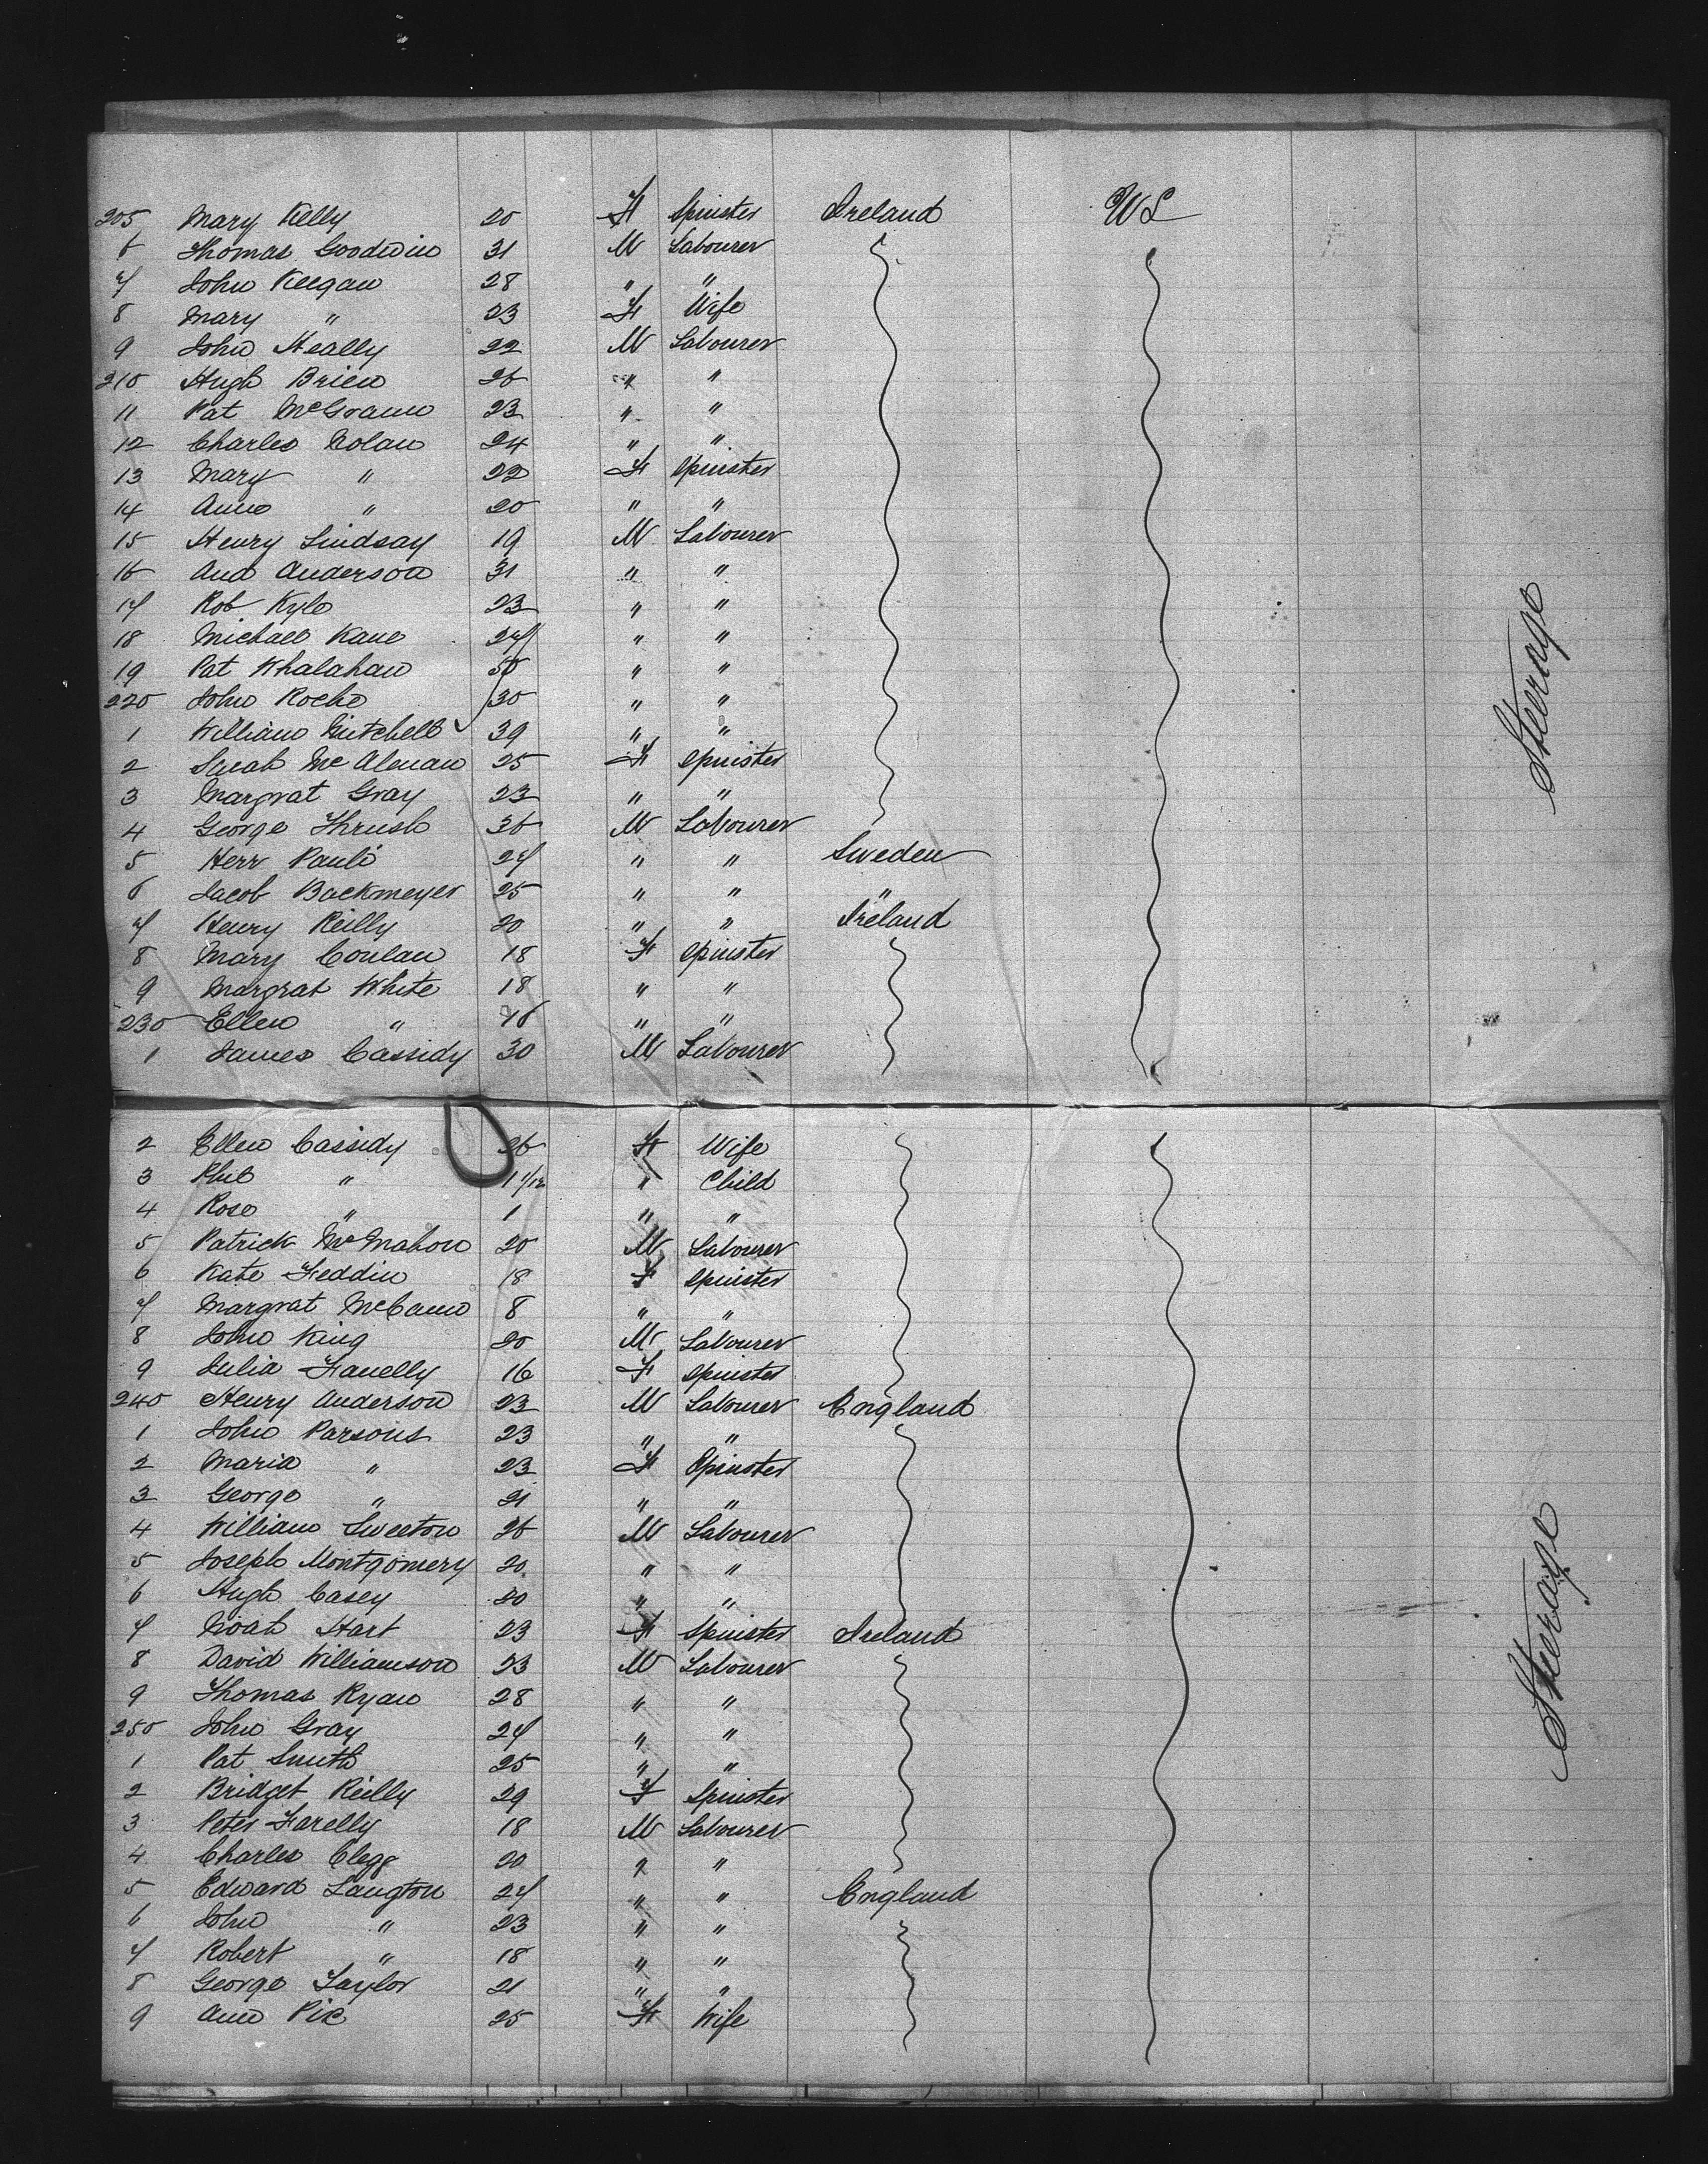 205 Mary Kelly 20 F Spinster Ireland US
6 Thomas Goodwin 31 M Labourer
7 John Keegan 28 " "
8 Mary " 23 F Wife
9 John Heally 22 M Labourer
210 Hugh Brien 26 " "
11 Pat McGrann 23 " "
12 Charles Nolan 24 " "
13 Mary " 22 F Spinster
14 Anne " 20 " "
15 Henry Lindsay 19 M Labourer
16 And Anderson 31 " "
17 Rob Kyle 23 " "
18 Michael Kane 27 " "
19 Pat Whalahan 50 " "
220 John Roche 30 " "
1 William Mitchell 39 " "
2 Sarah McAlenan 25 F Spinster
3 Margrat Gray 23 " "
4 George Thrush 36 M Labourer
5 Herr Pauli 27 " " Sweden
6 Jacob Backmeyer 25 " " "
7 Henry Reilly 20 " " Ireland
8 Mary Conlan 18 F Spinster
9 Margrat White 18 " "
230 Ellen " 16 " "
1 James Cassidy 30 M Labourer
2 Ellen Cassidy 26 F Wife
3 Phil " " Child
4 Rose " 1 " "
5 Patrick McMahon 20 M Labourer
6 Kate Feddin 18 F Spinster
7 Margrat McCann 8 " "
8 John King 20 M Labourer
9 Julia Fanelly 16 F Spinster
240 Henry Anderson 23 M Labourer England
1 John Parsons 23 " "
2 Maria " 23 F Spinster
3 George " 21 " "
4 William Sweeton 26 M Labourer
5 Joseph Montgomery 20 " "
6 Hugh Casey 20 " "
7 Noah Hart 23 F Spinster Ireland
8 David Williamson 23 M Labourer
9 Thomas Ryan 28 " "
250 John Gray 27 " "
1 Pat Smith 25 " "
2 Bridget Reilly 29 F Spinster
3 Peter Farelly 18 M Labourer
4 Charles Clegg 20 " "
5 Edward Langton 27 " " England
6 John " 23 " "
7 Robert " 18 " "
8 George Taylor 21 " "
9 Ann Pie 25 F Wife
Steerage
Steerage